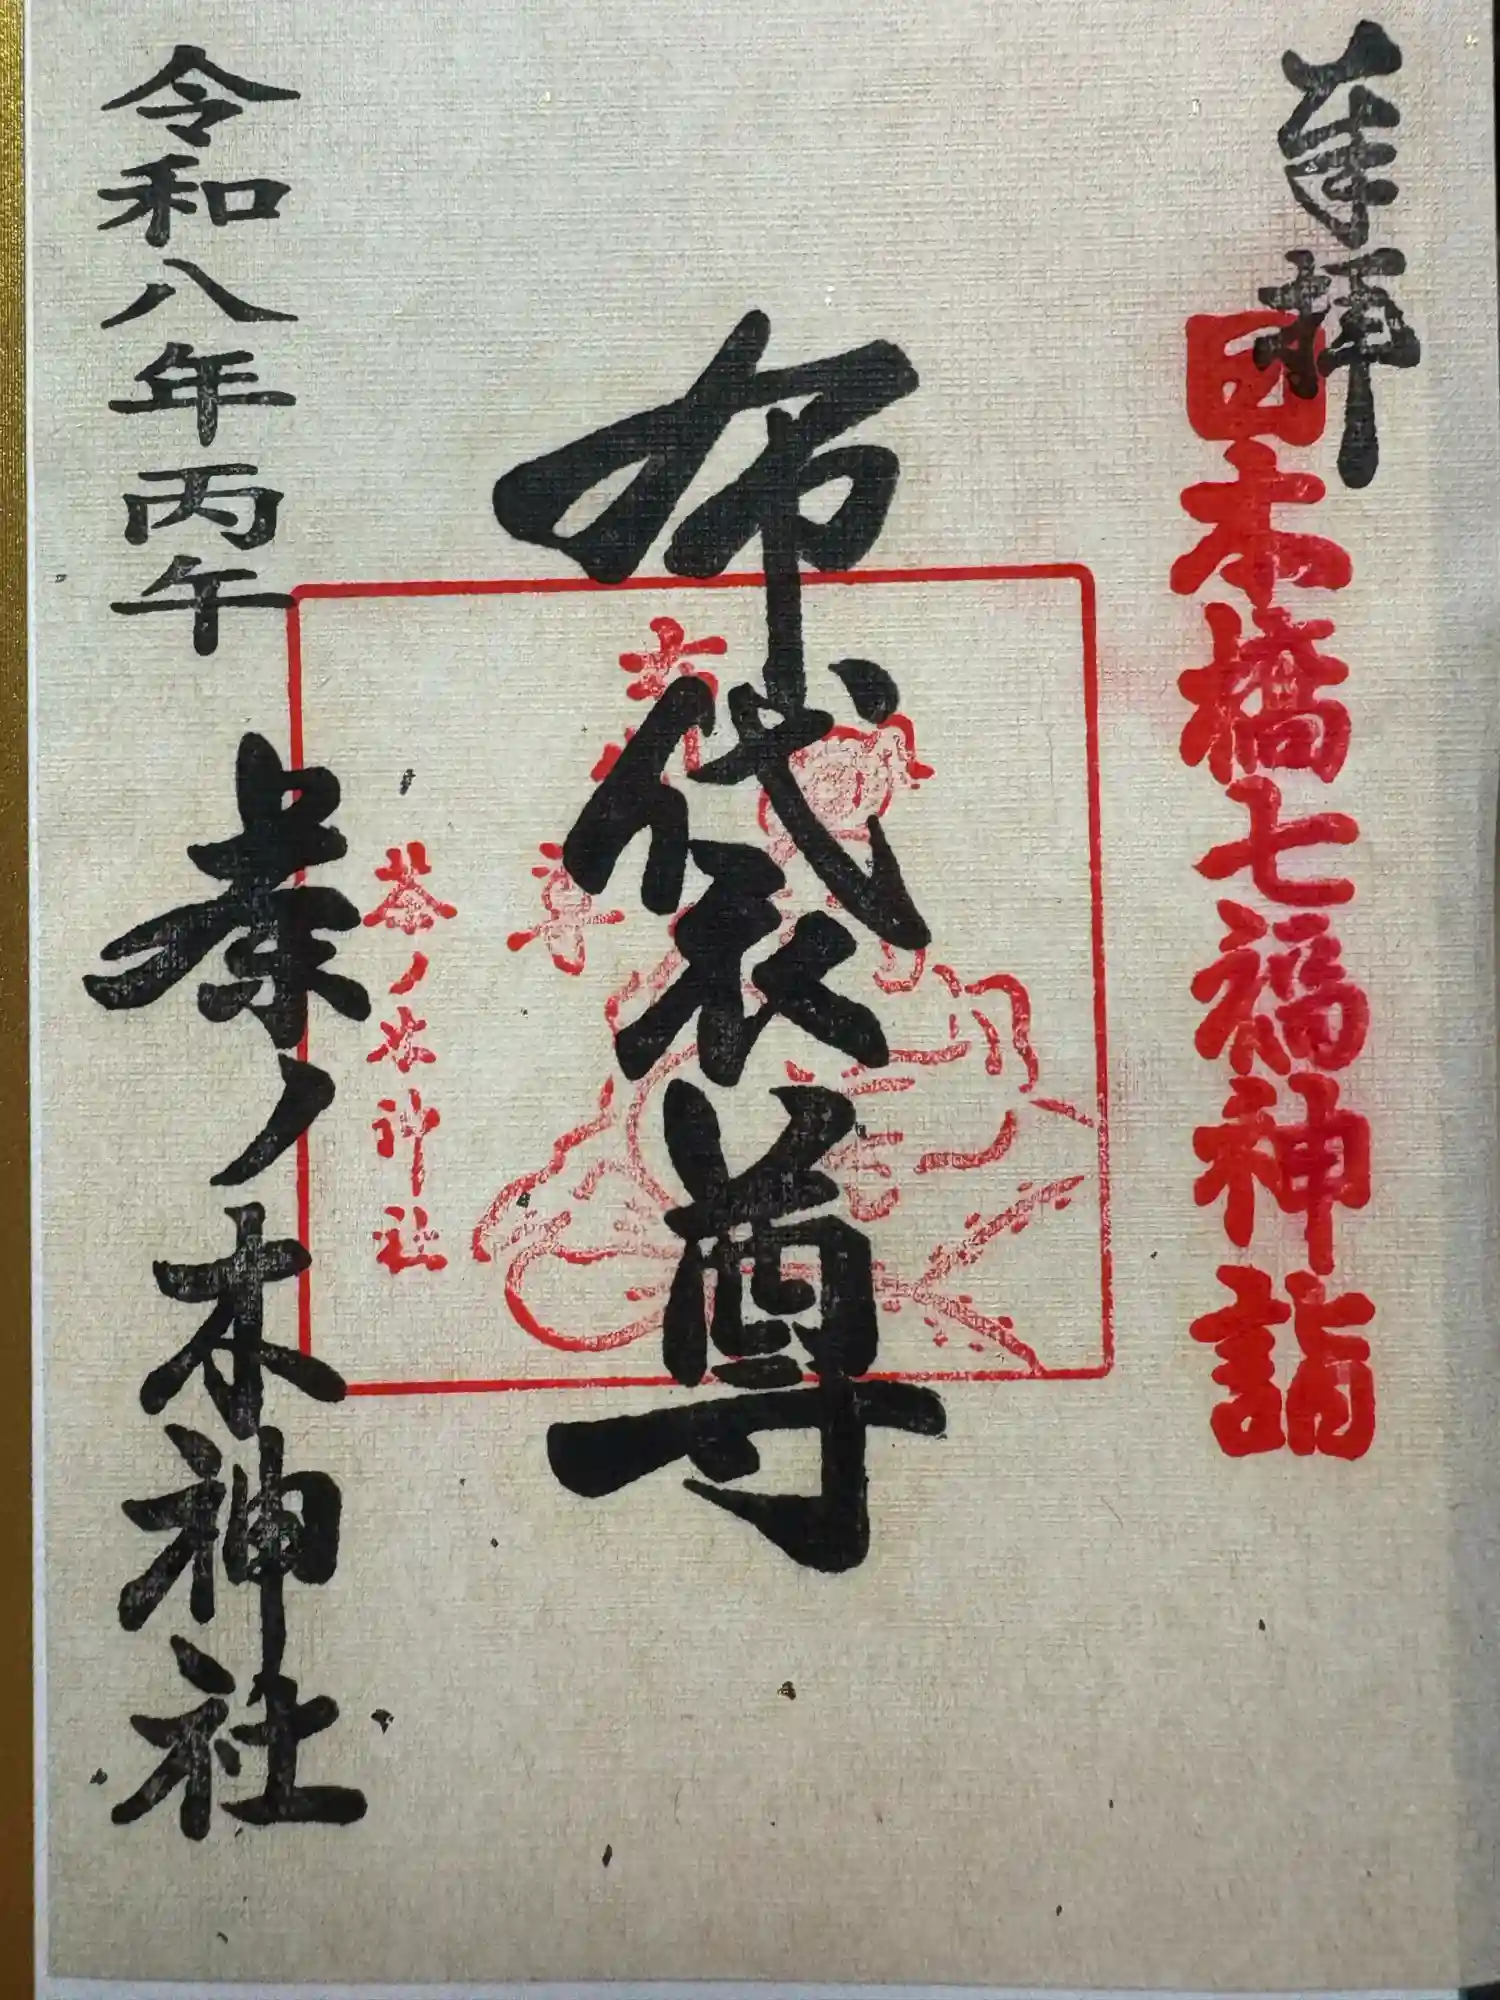 奉拝
日本橋七福神詣
布袋尊
茶ノ木神社
令和八年丙午
茶ノ木神社